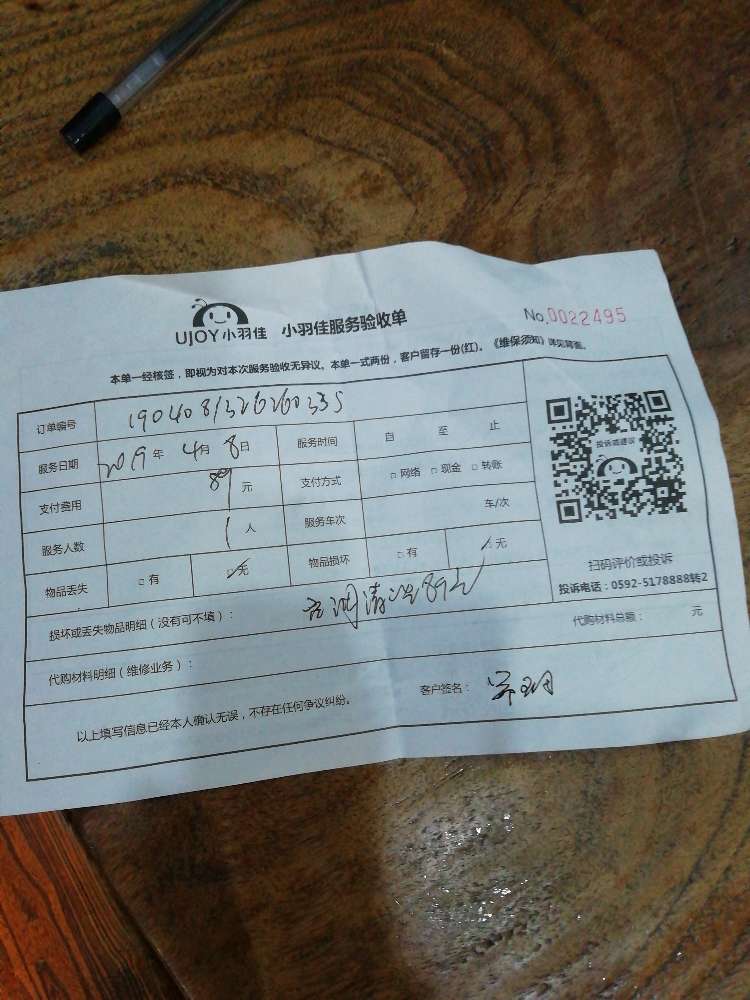 UJOY小羽佳 小羽佳服务验收单 No.0022495
本单一经核签，即视为对本次服务验收无异议。本单一式两份，客户留存一份(红)。《维保须知》详见背面。
订单编号 190408132626033S
服务日期 2019年4月8日 服务时间 自 至 止
支付费用 89元 支付方式 □网络 □现金 □转账
服务人数 1人 服务车次 车/次
物品丢失 □有 □无 物品损坏 □有 □无
投诉或建议
扫码评价或投诉
投诉电话：0592-5178888转2
损坏或丢失物品明细（没有可不填）： 空调清洗89元
代购材料明细（维修业务）： 代购材料总额： 元
以上填写信息已经本人确认无误，不存在任何争议纠纷。 客户签名：